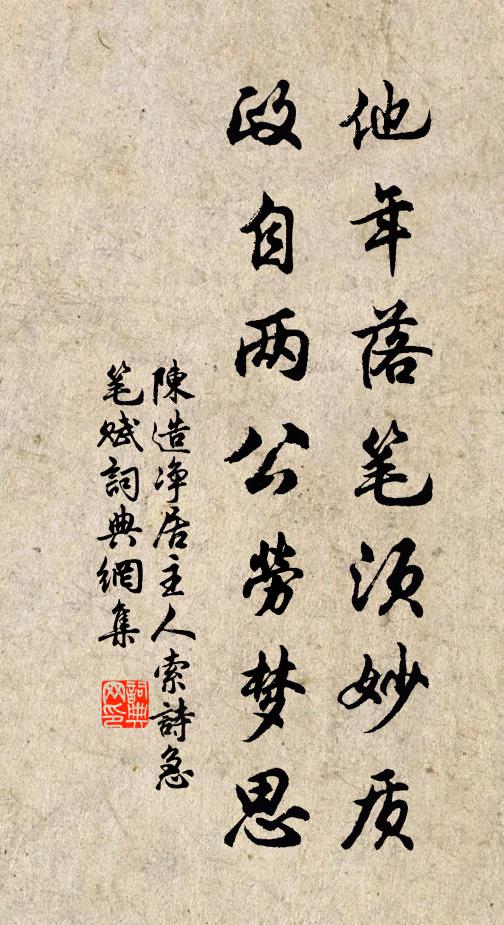 他年落笔须妙质
政自两公劳梦思
陳造净居主人索詩急
笔赋詞典網集
詞典
网印